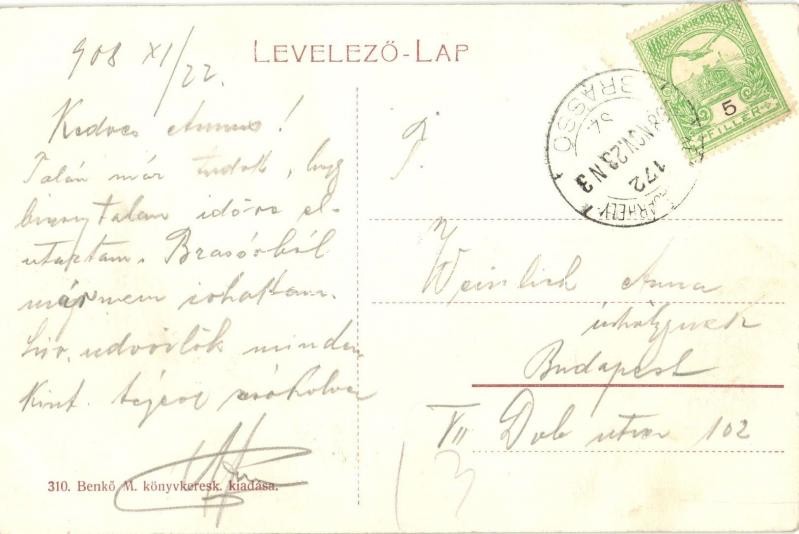 908 XI/22.
LEVELEZŐ-LAP
Kedves Annus!
Talán már tudok, hogy
bizonytalan időre el-
utaztam. Brassóból
már nem írhattam.
Szív. üdvözlök minden
kint. csókolva
310. Benkő M. könyvkeresk. kiadása.
MAGYAR KIR. POSTA
5
FILLÉR
BRASSÓ
908 NOV. 23. N 3
172
VÁSÁRHELY
T.
Weinlich Anna
úrhölgynek
Budapest
VII Dob utca 102
13